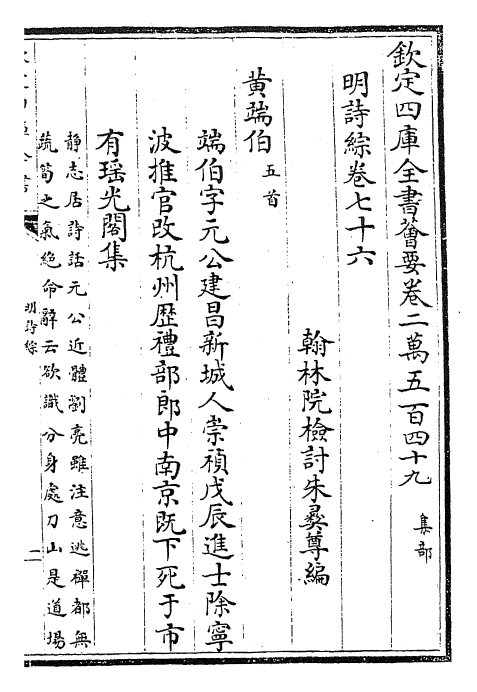 欽定四庫全書薈要卷二萬五百四十九 集部
明詩綜卷七十六
翰林院檢討朱彝尊編
黄端伯 五首
端伯字元公建昌新城人崇禎戊辰進士除寧
波推官改杭州歴禮部郎中南京既下死于市
有瑶光閣集
静志居詩話元公近體瀏亮雖注意逃禪都無
蔬筍之氣絶命辭云欲識分身處刀山是道場
明詩綜